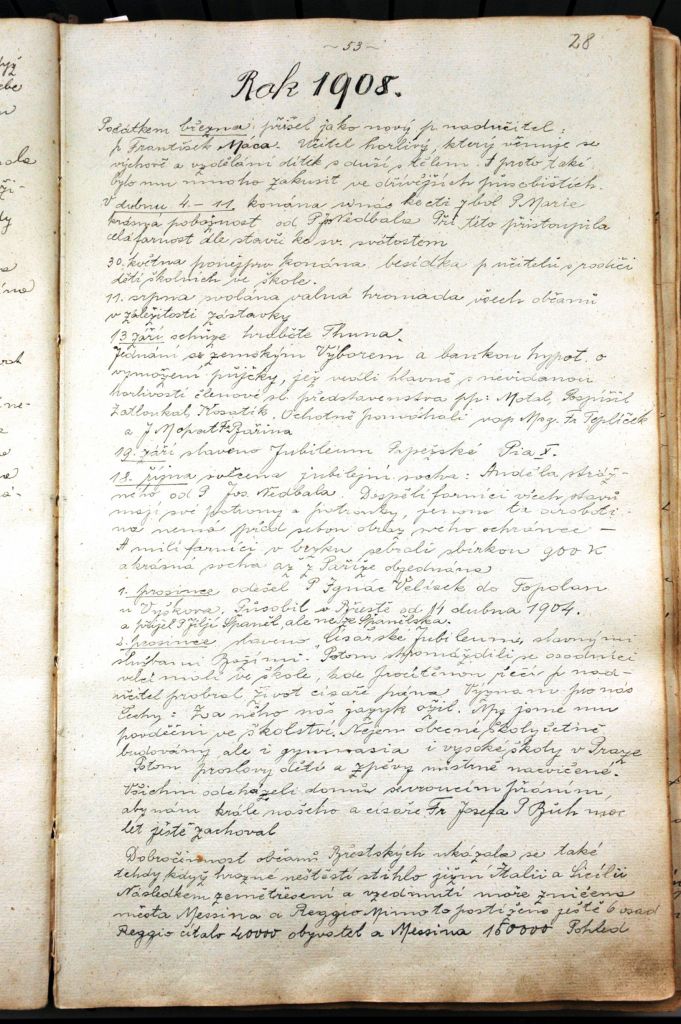 ~ 53 ~
28
Rok 1908.
Počátkem března přišel jako nový p nadučitel:
p František Maca. Učitel horlivý, který věnuje se
výchově a vzdělání dítek s duší, s tělem. A proto také
bylo mu mnoho zakusit ve dřívějších působištích.
V dubnu 4. – 11. konána u nás ke cti 7 bol P. Marie
krásná pobožnost od P. Jos Nedbala Při této přistoupila
celá farnost dle stavů ke sv. svátostem
30. května ponejprv konána besídka p učitelů s rodiči
dětí školních ve škole.
11. srpna svolána valná hromada všech občanů
v záležitosti zástavky
13 září schůze hraběte Thuna.
Jednání se zemským Výborem a bankou hypot. o
vymožení půjčky, jež vedli hlavně s nevídanou
horlivostí členové sl. představenstva pp: Motal, Pospíšil
Zatloukal, Kosatík. Ochotně pomáhali vdp Mgr. Fr Teplíček
a J. Fr Bařina
19. září slaveno Jubileum Papežské Pia X.
18. října svěcena jubilejní socha: Anděla stráž-
ného od P Jos. Nedbala. Dospělí farníci všech stavů
mají své patrony a patronky, jenom ta droboti-
na nemá před sebou obraz svého ochránce –
A milí farníci v brzku sebrali sbírkou 900 K
a krásná socha až z Paříže objednána
1. prosince odešel P Ignác Velísek do Topolan
u Vyškova. Působil v Břestě od 14 dubna 1904.
a přijel P Jiljí Španěl, ale ne ze Španělska.
2. prosince slaveno Císařské Jubileum, slavnými
službami Božími. Potom shromáždili se osadníci
velcí malí ve škole, kde procítěnou řečí p nad-
učitel probral život císaře pána Význam pro nás
Čechy: Za něho náš jazyk ožil. My jsme mu
povděčni ve školství. Nejen obecné školy četně
budovány ale i gymnasia i vysoké školy v Praze
Potom proslovy dětí a zpěvy mistrně nacvičené.
Všichni odcházeli domů se vroucím přáním,
aby nám krále našeho a císaře Fr Josefa P Bůh moc
let ještě zachoval
Dobročinnost občanů Břestských ukázala se také
tehdy když hrozné neštěstí stihlo jižní Italii a Sicílii
Následkem zemětřesení a vzedmutí moře zničena
města Messina a Reggio Mimoto postiženo ještě 6 osad
Reggio čítalo 40000 obyvatel a Messina 150000 Pohled